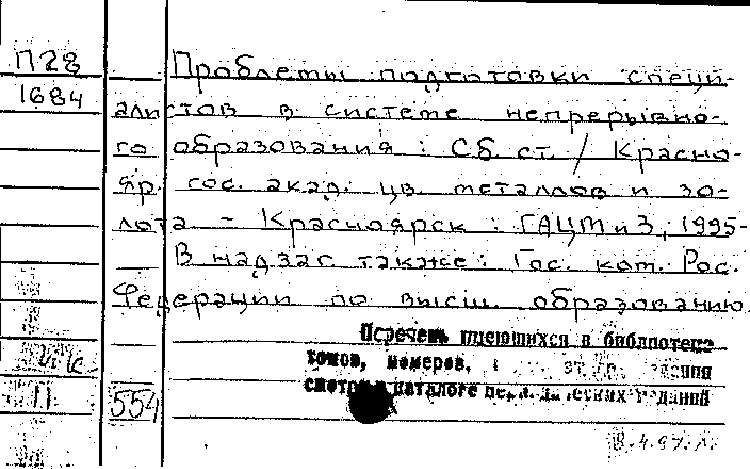 П28
1684
Проблемы подготовки специ-
алистов в системе непрерывно-
го образования : Сб. ст. / Красно-
яр. гос. акад. цв. металлов и зо-
лота - Красноярск : ГАЦМиЗ, 1995-
В надзаг. также: Гос. ком. Рос.
Федерации по высш. образованию
Перечень имеющихся в библиотеке
томов, номеров,
смотри каталоге
554